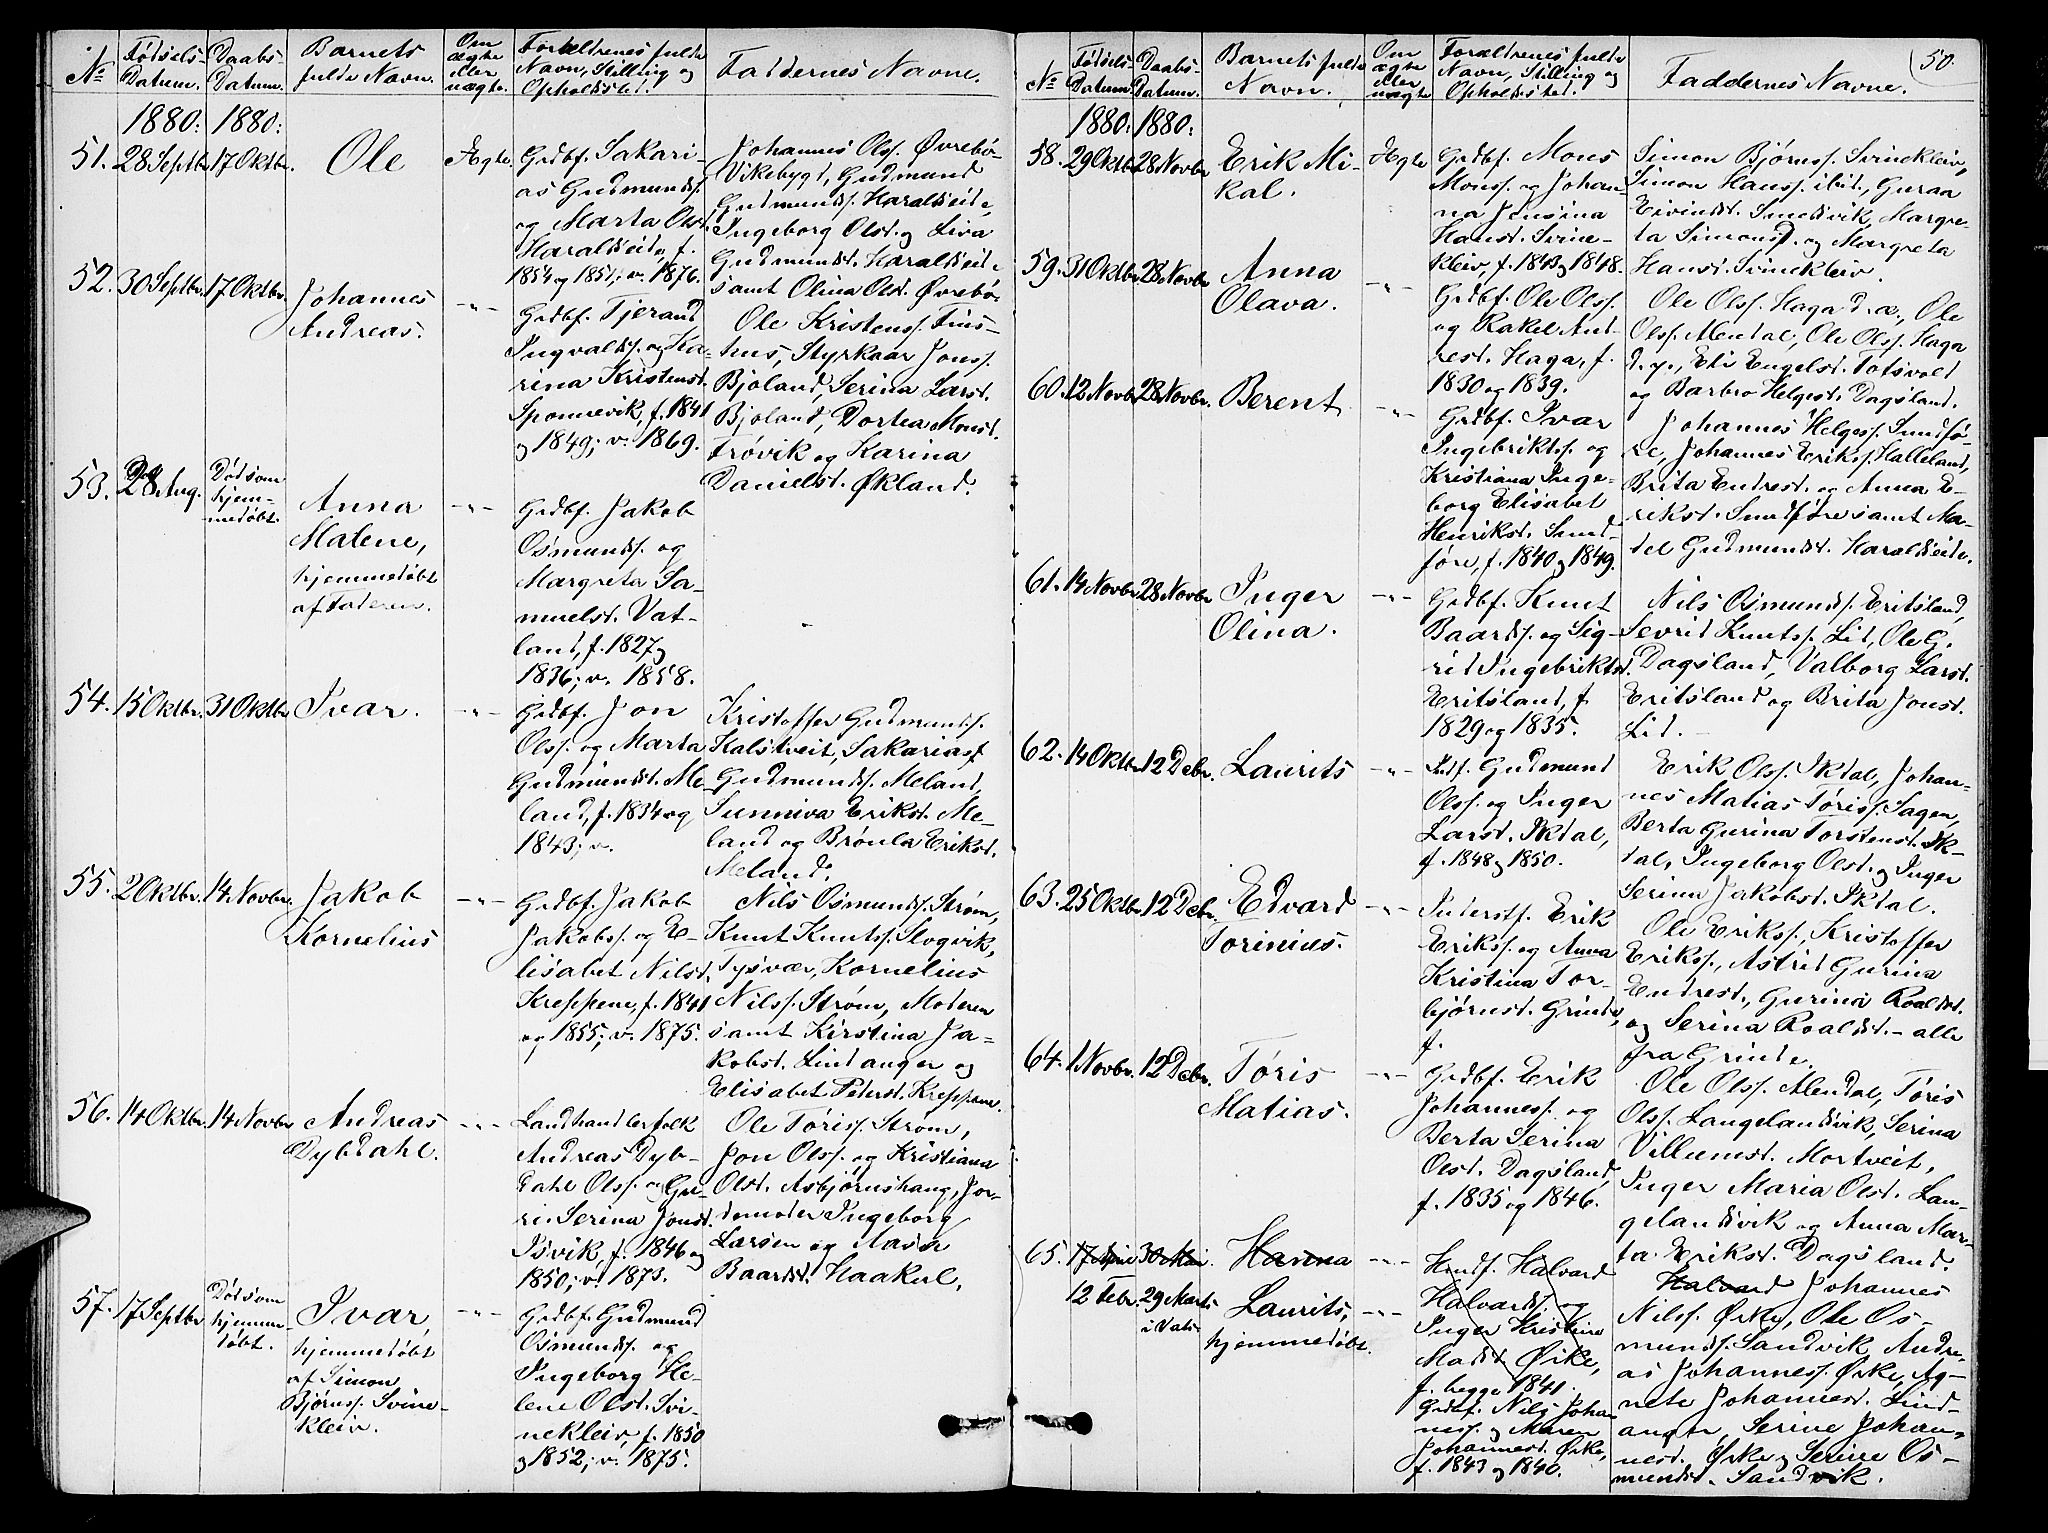 No
Fødsels-
Datum.
Daabs-
Datum.
Barnets
fulde Navn.
Om
ægte
eller
uægte.
Forældrenes fulde
Navn, Stilling og
Opholdssted.
Faddernes Navne.
1880: 1880:
51. 28 Septbr. 17 Oktbr. Ole Ægte.
Grdbf. Sakari-
as Gudmunds.
og Marta Olsd.
Haraldseide, f.
1854 og 1851; v. 1876.
Johannes Olss. Øvrebø-
Vikebygd, Gudmund
Gudmunds. Haraldseide,
Ingeborg Olsd. og Siva
Gudmundsd. Haraldseide
samt Olina Olsd. Øvrebø.
52. 30 Septbr. 17 Oktbr. Johannes
Andreas.
-"-
Grdbf. Tjerand
Ingvalds. og Ka-
rina Kristensd.
Sponnevik, f. 1841
og 1849; v. 1869.
Ole Kristenss. Tins-
hus, Styrkaar Jonss.
Bjoland, Serina Larsd.
Bjoland, Dortea Monsd.
Frøvik og Karina
Danielsd. Økland.
53. 28 Aug.
Død som
hjem-
medøbt.
Anna
Malene,
hjemmedøbt
af Faderen.
-"-
Grdbf. Jakob
Osmunds. og
Margreta Sa-
muelsd. Vat-
land, f. 1827 og
1836; v. 1858.
54. 15 Oktbr. 31 Oktbr. Ivar.
-"-
Grdbf. Jon
Olss. og Marta
Gudmundsd. Me-
land, f. 1834 og
1843; v.
Kristoffer Gudmunds.
Kalstveit, Sakarias
Gudmunds. Meland,
Sunniva Eriksd. Me-
land og Brønla Eriksd.
Meland.
55. 2 Oktbr. 14 Novbr. Jakob
Kornelius
-"-
Grdbf. Jakob
Jakobs. og E-
lisabet Nilsd.
Kreppene, f. 1841
og 1855; v. 1875.
Nils Osmunds. Strøm,
Knut Knuts. Slogvik,
Tysvær, Kornelius
Nilss. Strøm, Moderen
samt Kirstina Ja-
kobsd. Lindanger og
Elisabet Petersd. Kreppene.
56. 14 Oktbr. 14 Novbr. Andreas
Dybdahl.
-"-
Landhandlerfolk
Andreas Dyb-
dahl Olss. og Gu-
ri Serina Jonsd.
Isvik, f. 1846 og
1850; v. 1873.
Ole Tøriss. Strøm,
Jon Olss. og Kristiana
Olsd. Asbjørnshaug, Jor-
demoder Ingeborg
Larsen og Aasa
Baardsd. Haakul.
57. 17 Septbr.
Død som
hjemme-
døbt.
Ivar,
hjemmedøbt
af Simon
Bjørns. Svine-
kleiv.
-"-
Grdbf. Gudmund
Osmunds. og
Ingeborg He-
lene Olsd. Svi-
nekleiv, f. 1850
og 1852; v. 1875.
50.
No
Fødsels-
Datum.
Daabs-
Datum.
Barnets fulde
Navn.
Om
ægte
eller
uægte
Forældrenes fulde
Navn, Stilling og
Opholdssted.
Faddernes Navne.
1880: 1880:
58. 29 Oktbr. 28 Novbr. Erik Mi-
kal.
Ægte
Grdbf. Mons
Monss. og Johan-
na Jensina
Hansd. Svine-
kleiv, f. 1843 og 1848.
Simon Bjørns. Svinekleiv,
Simon Hanss. ibid., Guraa
Eivindsd. Smedsvik, Margre-
ta Simonsd. og Margreta
Hansd. Svinekleiv.
59. 31 Oktbr. 28 Novbr. Anna
Olava.
-"-
Grdbf. Ole Olss.
og Rakel And-
resd. Haga, f.
1830 og 1839.
Ole Olss. Haga d.æ., Ole
Olss. Alendal, Ole Olss. Haga
d.y., Eli Engelsd. Totsvold
og Barbro Helgesd. Dagsland.
60. 12 Novbr. 28 Novbr. Berent
-"-
Grdbf. Ivar
Ingebriktss. og
Kristiana Inge-
borg Elisabet
Henriksd. Sund-
føre, f. 1840 og 1849.
Johannes Helgess. Sundfø-
re, Johannes Erikss. Halleland,
Brita Endresd. og Anna E-
riksd. Sundføre samt Ma-
del Gudmundsd. Haraldseide.
61. 14 Novbr. 28 Novbr. Inger
Olina.
-"-
Grdbf. Knut
Baards. og Sig-
rid Ingebriktsd.
Eritsland, f.
1829 og 1835.
Nils Osmunds. Eritsland,
Sevrid Knutss. Lid, Ole G.
Dagsland, Valborg Larsd.
Eritsland og Brita Jonsd.
Lid.
62. 14 Oktbr. 12 Debr. Laurits
-"-
Indf. Gudmund
Olss. og Inger
Larsd. Ikdal,
f. 1848 og 1850.
Erik Olss. Ikdal, Johan-
nes Matias Tøriss. Sagen,
Berta Gurina Torstensd. Ik-
dal, Ingeborg Olsd. og Inger
Serina Jakobsd. Ikdal.
63. 25 Oktbr. 12 Debr. Edvard
Torinius.
-"-
Inderstf. Erik
Erikss. og Anna
Kristina Tor-
bjørnsd. Grinde,
f.
Ole Erikss., Kristoffer
Erikss., Astrid Gurina
Endresd., Gurina Roaldsd.
og Serina Roaldsd. - alle
fra Grinde.
64. 1 Novbr. 12 Debr. Tøris
Matias.
-"-
Grdbf. Erik
Johanness. og
Berta Serina
Olsd. Dagsland,
f. 1835 og 1846.
Ole Olss. Alendal, Tøris
Olss. Langelandsvik, Serina
Villumsd. Mortveit,
Inger Maria Olsd. Lan-
gelandsvik og Anna Mar-
ta Eriksd. Dagsland.
65. 30 Mai. Hanna
-"-
Husf. Halvard
Halvards. og
Inger Kristine
Madsd. Ørke,
f. begge 1841.
12 Febr. 29 Marts
Laurits,
hjemmedøbt.
-"-
Grdbf. Nils Johan-
ness. og Maren
Johannesd. Ørke,
f. 1843 og 1840.
Halvard Johannes
Nilss. Ørke, Ole Os-
munds. Sandvik, Andre-
as Johanness. Ørke, Ag-
nete Johannesd. Lind-
anger, Serine Johan-
nesd. Ørke og Serine Os-
mundsd. Sandvik.